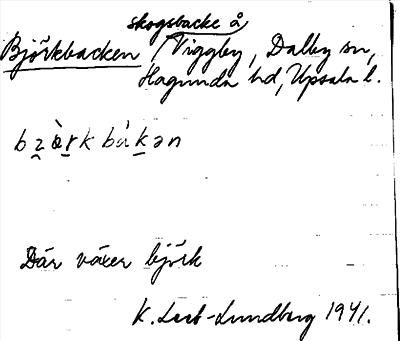 skogsbacke å
Björkbacken Viggby, Dalby sn,
Hagunda hd, Upsala l.
Där växer björk
K. Lert-Lundberg 1941.